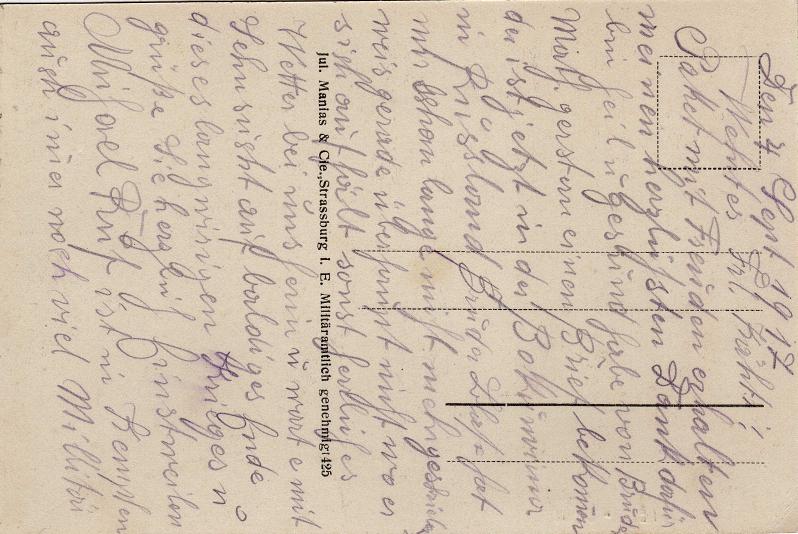 Den 4 Sept 1917
Wertes Frl. 
Paket mit Freuden erhalten
meinen herzlichsten Dank dafür
bin heil u gesund habe von Bruder
gestern einen Brief bekommen
der ist jetzt in der
in Russland Bruder hat
mir schon lange nicht mehr geschrieben
weis gerade überhaupt nicht wo er
sich aufhält sonst herrliches
Wetter bei uns hern u warte mit
Sehnsucht auf baldiges Ende
dieses langwirigen Krieges u
grüße Sie herzlich Einstweilen
Michael ist in Kempten
auch immer noch viel Militär
Jul. Manias & Cie., Strassburg i. E. Militäramtlich genehmigt 425